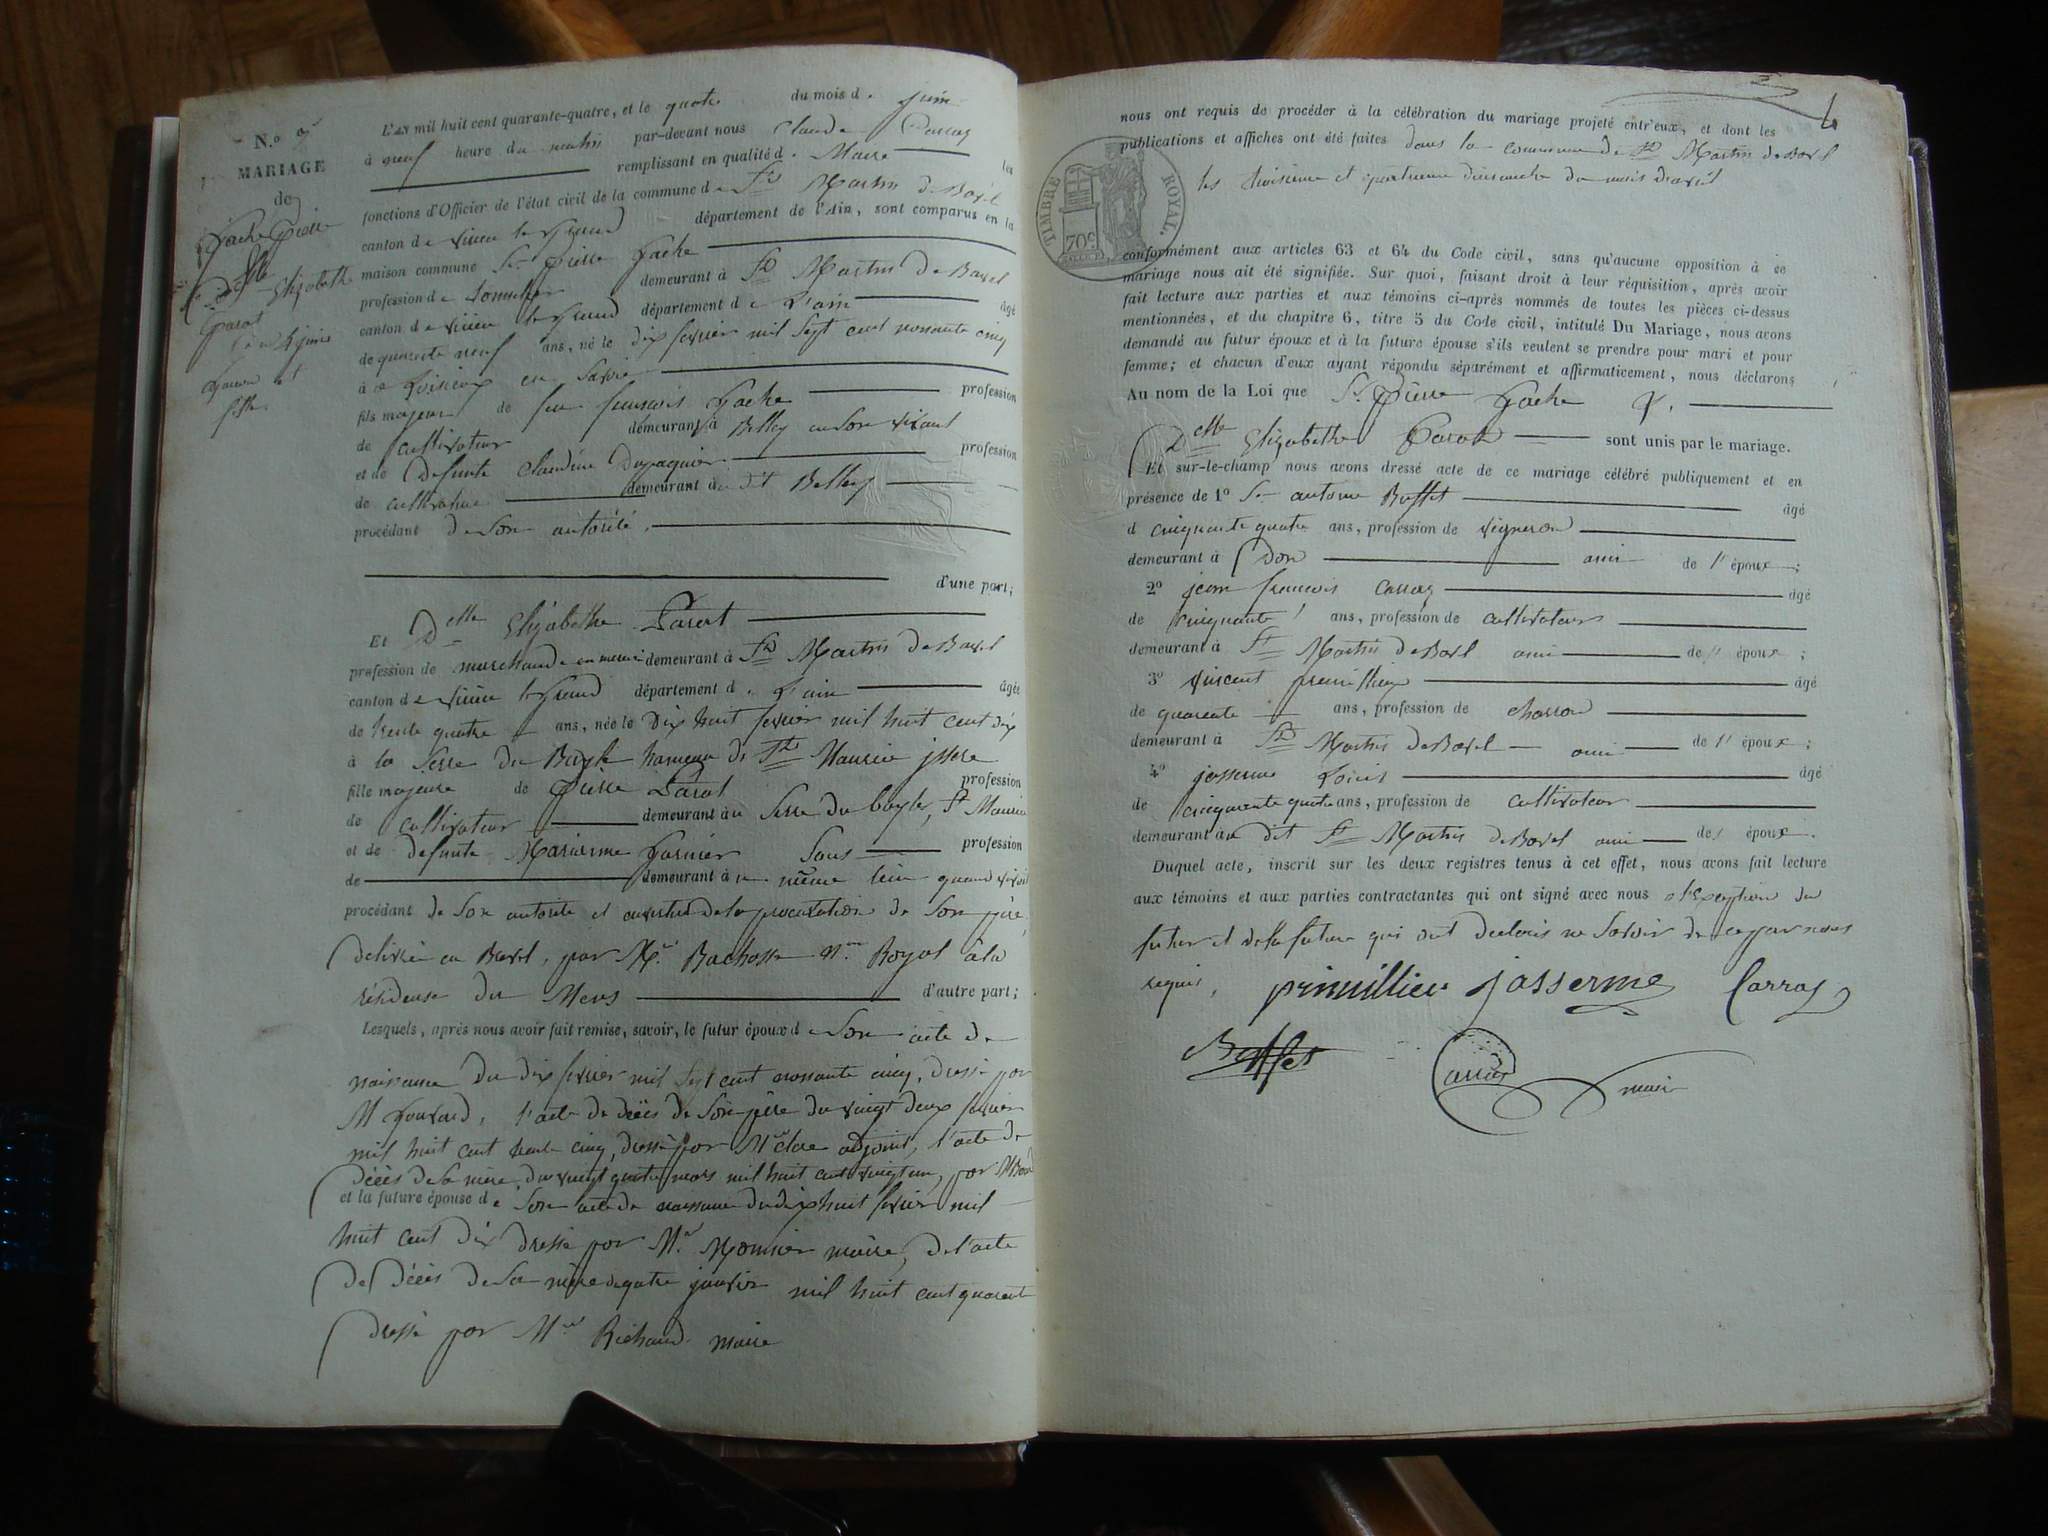 N.o
MARIAGE
de
Gache Pierre
Delle Elizabethe
Parat
4 juin
L'AN mil huit cent quarante-quatre, et le quatre du mois de juin
à neuf heure du matin par-devant nous Claude Carraz
remplissant en qualité de Maire les
fonctions d'Officier de l'état civil de la commune de St Martin de Bavel
canton de virieu le Grand département de l'Ain, sont comparus en la
maison commune Sr Pierre Gache
profession de tonnelier demeurant à St Martin de Bavel
canton de virieu le Grand département de L'ain âgé
de quarante neuf ans, né le dix fevrier mil sept cent nonante cinq
à Loisieux en Savoie
fils majeur de feu francois Gache profession
de cultivateur demeurant à Belley en son vivant
et de defunte Claudine Dupaquier profession
de cultivatrice demeurant au dit Belley
procédant de son autorité.
d'une part;
Et Delle Elizabethe Parat
profession de marchande en mercerie demeurant à St Martin de Bavel
canton de virieu le Grand département de L'ain âgée
de trente quatre ans, née le Dix huit fevrier mil huit cent dix
à la Serre du Bayle hameau de St Maurice jsere
fille majeure de Pierre Parat profession
de cultivateur demeurant au Serre du bayle, St Maurice
et de defunte Marianne Garnier Sans profession
de demeurant à u même lieu quand vivait
procédant de son autorité et en vertu de la procuration de Son père
delivrée en Brevet, par Mr. Bachasse nre Royal à la
résidense du Mens d'autre part;
Lesquels, après nous avoir fait remise, savoir, le futur époux de Son acte de
naissance du dix fevrier mil sept cent nonante cinq, dressé par
M, l'acte de décès de Son père du vingt deux fevrier
mil huit cent trente cinq, dressé par Mr clere adjoint, l'acte de
décès de sa mère du vingt quatre mars mil huit cent vingt un, par M
et la future épouse de Son acte de naissance du dix huit fevrier mil
huit cent dix dressé par Mr. Monnier maire, de l'acte
de décès de sa mère de quatre janvier mil huit cent quarante
dressé par Mr Richaud maire
nous ont requis de procéder à la célébration du mariage projeté entr'eux, et dont les
publications et affiches ont été faites dans la commune de St Martin de Bavel
les troisieme et quatrieme dimanche du mois d'avril
TIMBRE ROYAL.
70c
conformément aux articles 63 et 64 du Code civil, sans qu'aucune opposition à ce
mariage nous ait été signifiée. Sur quoi, faisant droit à leur réquisition, après avoir
fait lecture aux parties et aux témoins ci-après nommés de toutes les pièces ci-dessus
mentionnées, et du chapitre 6, titre 5 du Code civil, intitulé Du Mariage, nous avons
demandé au futur époux et à la future épouse s'ils veulent se prendre pour mari et pour
femme; et chacun d'eux ayant répondu séparément et affirmaticement, nous déclarons
Au nom de la Loi que Sr Pierre Gache &.
Delle Elizabethe Parat sont unis par le mariage.
Et sur-le-champ nous avons dressé acte de ce mariage célébré publiquement et en
présence de 1o Sr antoine Buffet âgé
d cinquante quatre ans, profession de vigneron
demeurant à Don ami de l' époux;
2o jean francois carraz âgé
de cinquante ans, profession de cultivateur
demeurant à St Martin de Bavel ami de l' époux;
3o vincent primillieu âgé
de quarente ans, profession de charron
demeurant à St Martin de Bavel ami de l' époux;
4o josserme Louis âgé
de cinquante quatre ans, profession de cultivateur
demeurant au dit St Martin de Bavel ami de l' époux.
Duquel acte, inscrit sur les deux registres tenus à cet effet, nous avons fait lecture
aux témoins et aux parties contractantes qui ont signé avec nous a l'Exception du
futur et de la future qui ont declaré ne Savoir de ce par nous
requis, primillieu josserme Carraz
Buffet Carraz maire